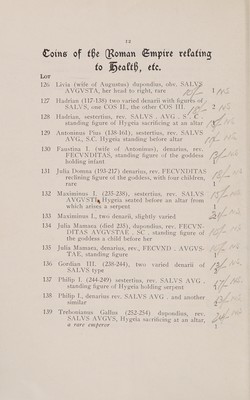 12
Coins of the Roman Empire relating
to Health, etc.
Lot
126 Livia (wife of Augustus) dupondius, obv. SALVS
AVGVSTA, her head to right, rare 1
127 Hadrian (117-138) two varied denarii with figures of
SALVS, one COS II., the other COS III. 2
128 Hadrian, sestertius, rev. SALVS . AVG . S . C .
standing figure of Hygeia sacrificing at an altar
129 Antoninus Pius (138-161), sestertius, rev. SALVS
AVG., S.C. Hygeia standing before altar
130 Faustina I. (wife of Antoninus), denarius, rev.
FECVNDITAS, standing figure of the goddess
holding infant
131 Julia Domna (193-217) denarius, rev. FECVNDITAS
reclining figure of the goddess, with four children,
rare 1
132 Maximinus I. (235-238), sestertius, rev. SALVS
AVGVSTI, Hygeia seated before an altar from
which arises a serpent 1
133 Maximinus I., two denarii, slightly varied
134 Julia Mamaea (died 235), dupondius, rev. FECVN-
DITAS AVGVSTAE . SC . standing figure of
the goddess a child before her
135 Julia Mamaea, denarius, rev., FECVND . AVGVS-
TAE, standing figure 1
136 Gordian III. (238-244), two varied denarii of
SALVS type
137 Philip I. (244-249) sestertius, rev. SALVS AVG .
standing figure of Hygeia holding serpent
138 Philip I., denarius rev. SALVS AVG . and another
similar 2
139 Trebonianus Gallus (252-254) dupondius, rev.
SALVS AVGVS, Hygeia sacrificing at an altar,
a rare emperor 1